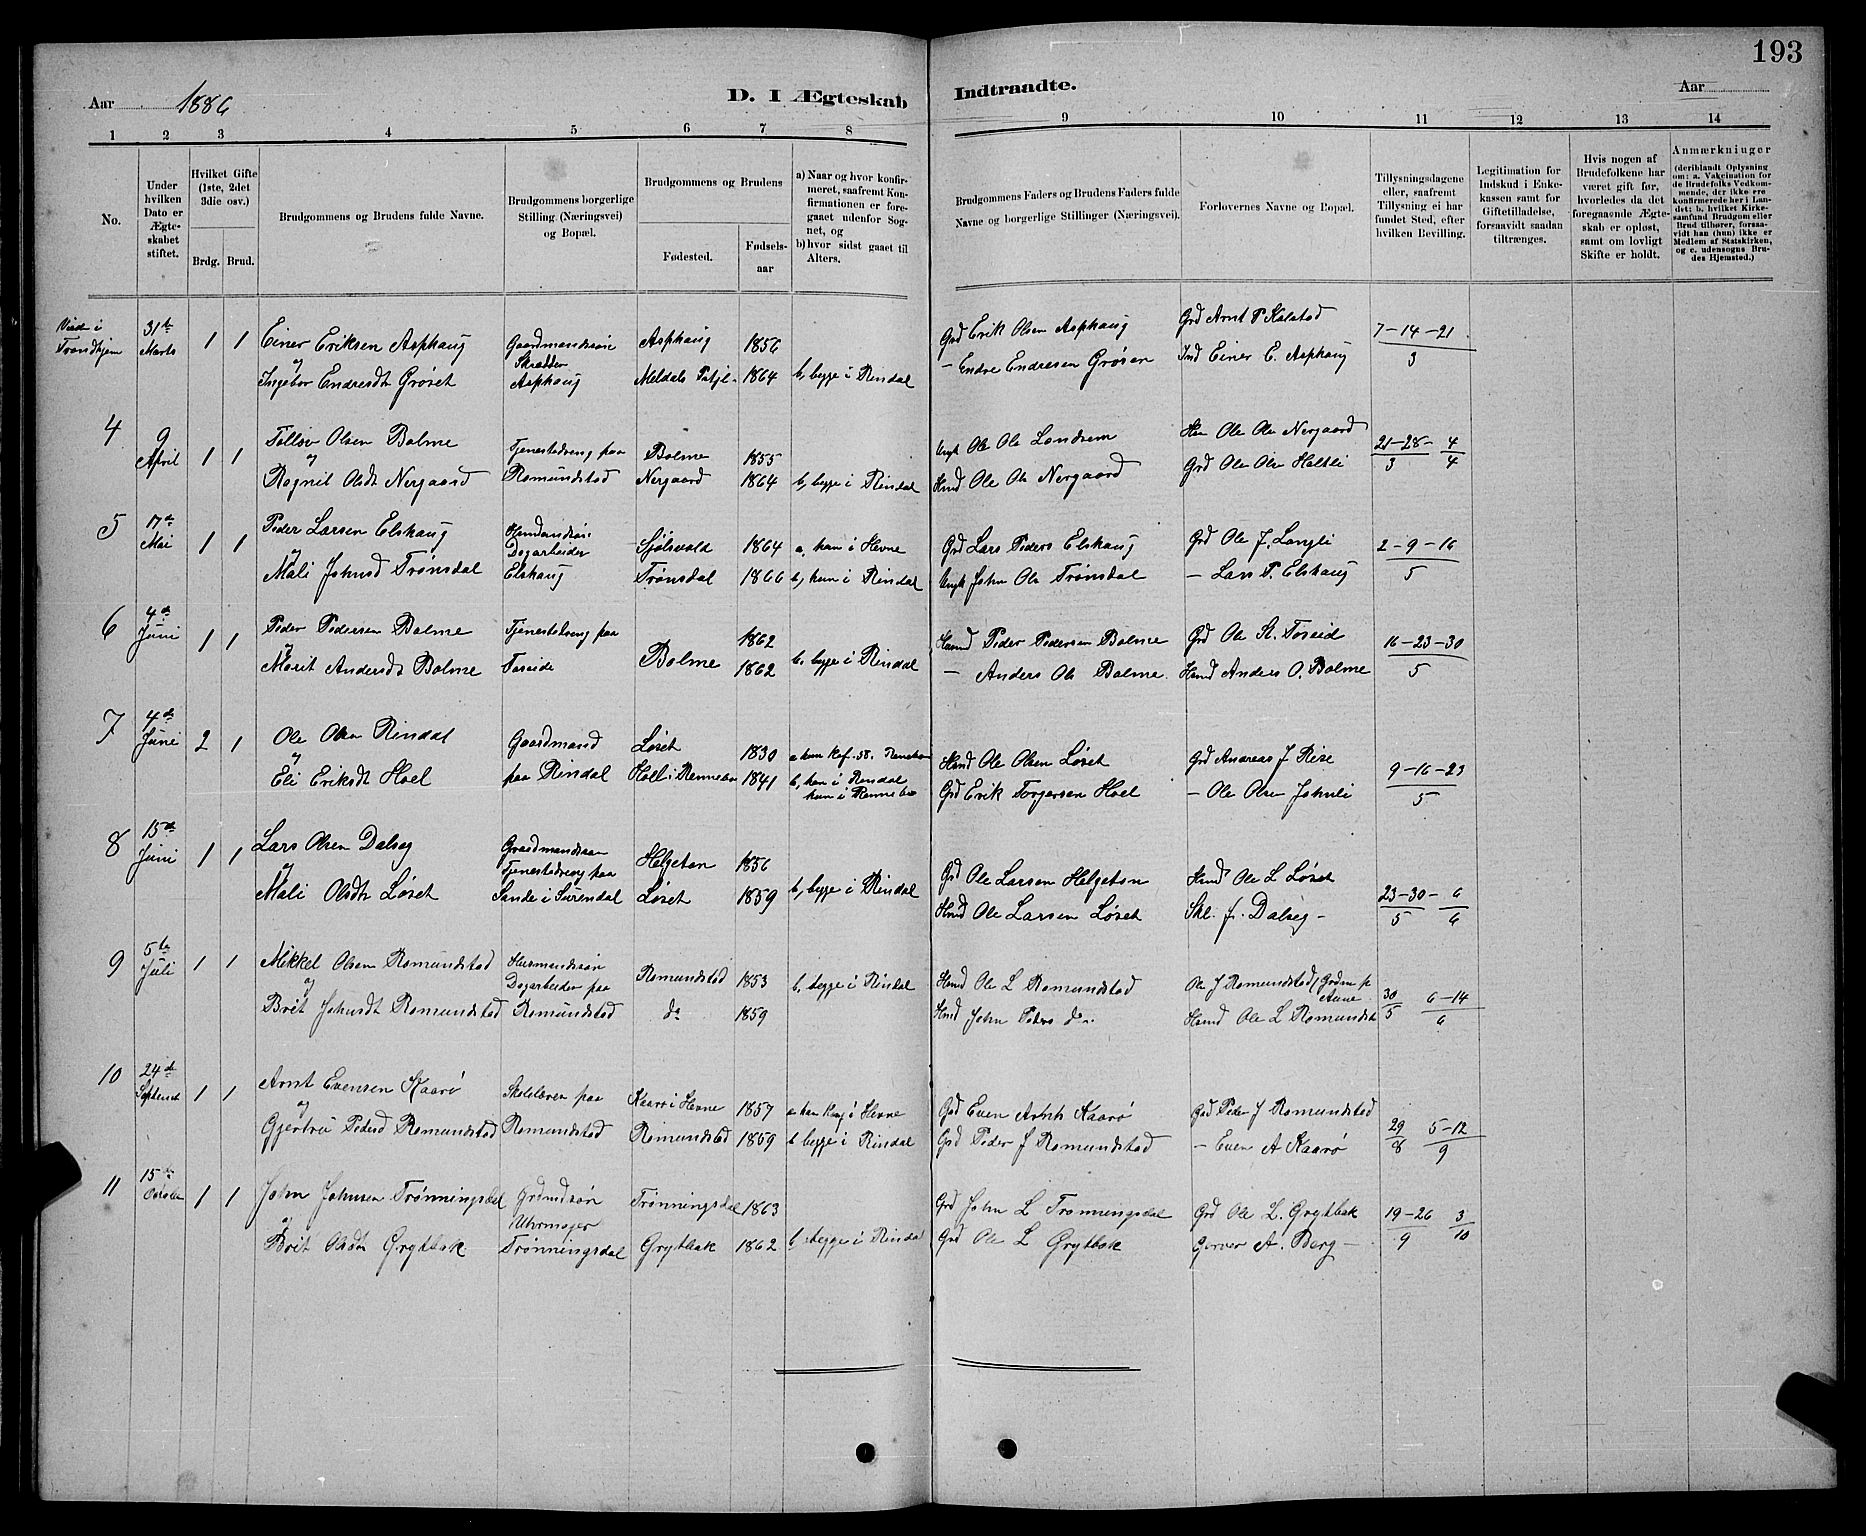 193
Aar 1886 D. I Ægteskab Indtraadte. Aar
1 2 3 4 5 6 7 8 9 10 11 12 13 14
No.
Under hvilken Dato er Ægteskabet stiftet.
Hvilket Gifte (1ste, 2det 3die osv.)
Brdg. Brud.
Brudgommens og Brudens fulde Navne.
Brudgommens borgerlige Stilling (Næringsvei) og Bopæl.
Brudgommens og Brudens
Fødested. Fødselsaar
a) Naar og hvor konfirmeret, saafremt Konfirmationen er foregaaet udenfor Sognet, og
b) hvor sidst gaaet til Alters.
Brudgommens Faders og Brudens Faders fulde Navne og borgerlige Stillinger (Næringsvei).
Forlovernes Navne og Bopæl.
Tillysningsdagene eller, saafremt Tillysning ei har fundet Sted, efter hvilken Bevilling.
Legitimation for Indskud i Enkekassen samt for Giftetilladelse, forsaavidt saadan tiltrænges.
Hvis nogen af Brudefolkene har været gift før, hvorledes da det foregaaende Ægteskab er opløst, samt om lovligt Skifte er holdt.
Anmærkninger (deriblandt Oplysning om: a. Vakcination for de Brudefolks Vedkommende, der ikke ere konfirmerede her i Landet; b. hvilket Kirkesamfund Brudgum eller Brud tilhører, forsaavidt han (hun) ikke er Medlem af Statskirken, og c. udensogns Brudes Hjemsted.)
Viede i Trondhjem 31te Marts 1 1 Einer Eriksen Asphaug Gaardmandssøn Asphaug 1856 Grd Erik Olsen Asphaug Grd Arnt P Kalstad 7-14-21/3
og Skrædder
Ingebor Endresdt Grøset Asphaug Meldals Pstgl. 1864 b, begge i Rindal - Endre Endresen Grøsen Ind Einer E. Asphaug
4 9 April 1 1 Tolløv Olsen Bolme Tjenestedreng paa Bolme 1855 Ungk Ole Ols Landsem Hm Ole Ols Nergaard 21-28/3 - 4/4
og
Ragnil Olsdt Nergaard Romundstad Nergaard 1864 b, begge i Rindal Hmd Ole Ols Nergaard Grd Ole Ols Holtli
5 17de Mai 1 1 Peder Larsen Elshaug Husmandssøn Sjølsvold 1864 a, han i Hevne Grd Lars Peders Elshaug Grd Ole J. Langli 2-9-16/5
og Dagarbeider
Mali Johnsd Trønsdal Elshaug Trønsdal 1866 b, hun i Rindal Ungk John Ols Trønsdal - Lars P. Elshaug
6 4de Juni 1 1 Peder Pedersen Bolme Tjenestedreng paa Bolme 1862 b, begge i Rindal Husmd Peder Pedersen Bolme Grd Ole St. Tøseid 16-23-30/5
og
Marit Andersdt Bolme 1862 - Anders Ols Bolme. Hmd Anders O. Bolme
7 4de Juni 2 1 Ole Olsen Rindal Gaardmand Løset 1830 Hmd Ole Olsen Løset Grd Andreas J Rise 9-16-23/5
og
Eli Eriksdt Hoel paa Rindal Hoel i Rennebo 1841 b, han i Rindal hun i Rennebo Grd Erik Torgersen Hoel - Ole Olsen Johnli
8 15de Juni 1 1 Lars Olsen Dalseg Gaardmandssøn Helgeton 1856 Grd Ole Larsen Helgeton Hmd Ole L Løset 23-30/5 - 6/6
og Tjenestedreng paa
Mali Olsdt Løset Sande i Surendal Løset 1859 b, begge i Rindal Hmd Ole Larsen Løset Skl. J. Dalseg -
9 5te Juli 1 1 Mikkel Olsen Romundstad Husmandssøn Romundstad 1853 b, begge i Rindal Hmd Ole L Romundstad Ole J Romundstad / Grdm p Aune 30/5 6-14/6
og Dagarbeider paa
Brit Johnsdt Romundstad Romundstad do 1859 Hmd John Peders do. Husmd Ole L Romundst
10 24de Septemb 1 1 Arnt Evensen Kaarø Skolelærer paa Kaarø i Hevne 1857 a han Konf i Hevne Grd Even Arnts Kaarø Grd Peder J Romundstad 29/8 5-12/9
og
Gjertru Pedersd Romundstad Romundstad Romundstad 1859 b begge i Rindal Grd Peder J Romundstad - Even A Kaarø
11 15de October 1 1 John Johnsen Trønningsdal Grdmdssøn Trønningsdal 1863 Grd John L Trønningsdal Grd Ole L. Grytbak 19-26/9 3/10
og Uhrmager
Brit Olsdt Grytbak Trønningsdal Grytbak 1862 b, begge i Rindal Grd Ole L Grytbak Garver A. Berg -